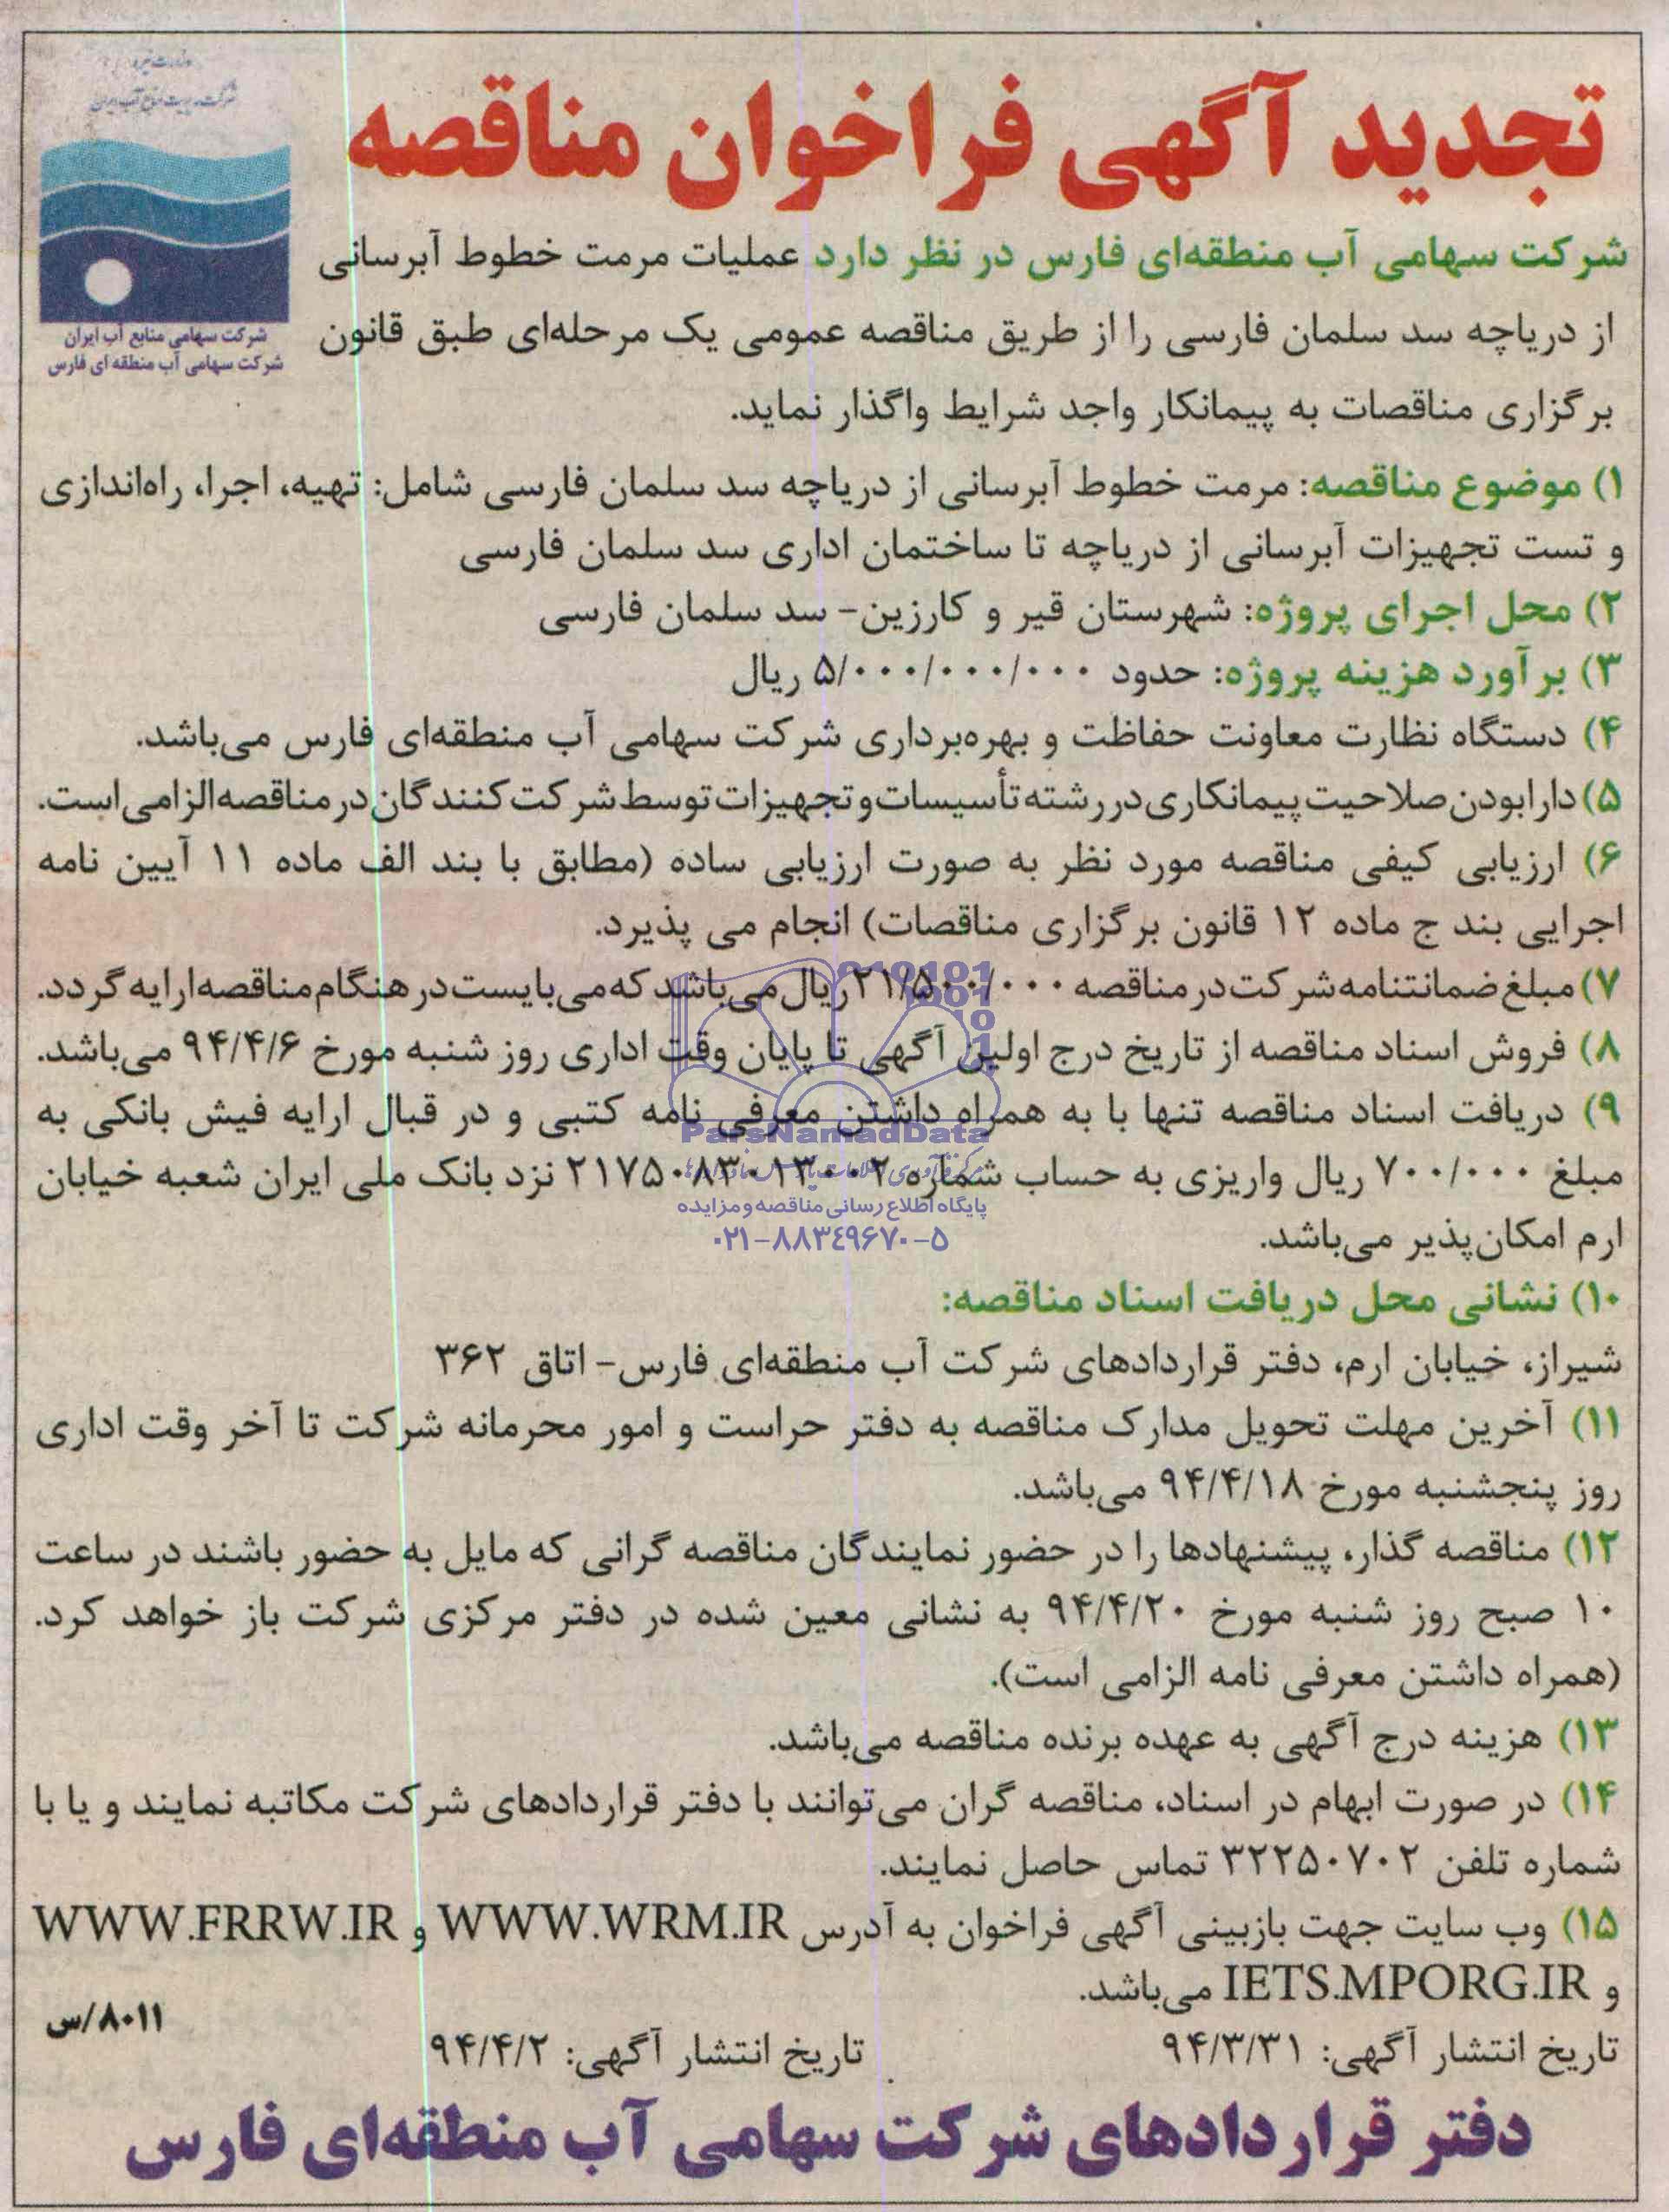 تجدید آگهی فراخوان مناقصه
وزارت نیرو
شرکت مدیریت منابع آب ایران
شرکت سهامی منابع آب ایران
شرکت سهامی آب منطقه ای فارس
شرکت سهامی آب منطقه‌ای فارس در نظر دارد عملیات مرمت خطوط آبرسانی
از دریاچه سد سلمان فارسی را از طریق مناقصه عمومی یک مرحله‌ای طبق قانون
برگزاری مناقصات به پیمانکار واجد شرایط واگذار نماید.
۱) موضوع مناقصه: مرمت خطوط آبرسانی از دریاچه سد سلمان فارسی شامل: تهیه، اجرا، راه‌اندازی
و تست تجهیزات آبرسانی از دریاچه تا ساختمان اداری سد سلمان فارسی
۲) محل اجرای پروژه: شهرستان قیر و کارزین- سد سلمان فارسی
۳) برآورد هزینه پروژه: حدود ۵/۰۰۰/۰۰۰/۰۰۰ ریال
۴) دستگاه نظارت معاونت حفاظت و بهره‌برداری شرکت سهامی آب منطقه‌ای فارس می‌باشد.
۵) دارا بودن صلاحیت پیمانکاری در رشته تأسیسات و تجهیزات توسط شرکت کنندگان در مناقصه الزامی است.
۶) ارزیابی کیفی مناقصه مورد نظر به صورت ارزیابی ساده (مطابق با بند الف ماده ۱۱ آیین نامه
اجرایی بند ج ماده ۱۲ قانون برگزاری مناقصات) انجام می پذیرد.
۷) مبلغ ضمانتنامه شرکت در مناقصه ۲۱/۵۰۰/۰۰۰ ریال می‌باشد که می‌بایست در هنگام مناقصه ارایه گردد.
۸) فروش اسناد مناقصه از تاریخ درج اولین آگهی تا پایان وقت اداری روز شنبه مورخ ۹۴/۴/۶ می‌باشد.
۹) دریافت اسناد مناقصه تنها با به همراه داشتن معرفی نامه کتبی و در قبال ارایه فیش بانکی به
ParsNamadData
مبلغ ۷۰۰/۰۰۰ ریال واریزی به حساب شماره ۲۱۷۵۰۸۳۰۱۳۰۰۲ نزد بانک ملی ایران شعبه خیابان
پایگاه اطلاع رسانی مناقصه و مزایده
۰۲۱-۸۸۳۴۹۶۷۰-۵
ارم امکان‌پذیر می‌باشد.
۱۰) نشانی محل دریافت اسناد مناقصه:
شیراز، خیابان ارم، دفتر قراردادهای شرکت آب منطقه‌ای فارس- اتاق ۳۶۲
۱۱) آخرین مهلت تحویل مدارک مناقصه به دفتر حراست و امور محرمانه شرکت تا آخر وقت اداری
روز پنجشنبه مورخ ۹۴/۴/۱۸ می‌باشد.
۱۲) مناقصه گذار، پیشنهادها را در حضور نمایندگان مناقصه گرانی که مایل به حضور باشند در ساعت
۱۰ صبح روز شنبه مورخ ۹۴/۴/۲۰ به نشانی معین شده در دفتر مرکزی شرکت باز خواهد کرد.
(همراه داشتن معرفی نامه الزامی است).
۱۳) هزینه درج آگهی به عهده برنده مناقصه می‌باشد.
۱۴) در صورت ابهام در اسناد، مناقصه گران می‌توانند با دفتر قراردادهای شرکت مکاتبه نمایند و یا با
شماره تلفن ۳۲۲۵۰۷۰۲ تماس حاصل نمایند.
۱۵) وب سایت جهت بازبینی آگهی فراخوان به آدرس WWW.WRM.IR و WWW.FRRW.IR
و IETS.MPORG.IR می‌باشد.
۸۰۱۱/س
تاریخ انتشار آگهی: ۹۴/۳/۳۱ تاریخ انتشار آگهی: ۹۴/۴/۲
دفتر قراردادهای شرکت سهامی آب منطقه‌ای فارس